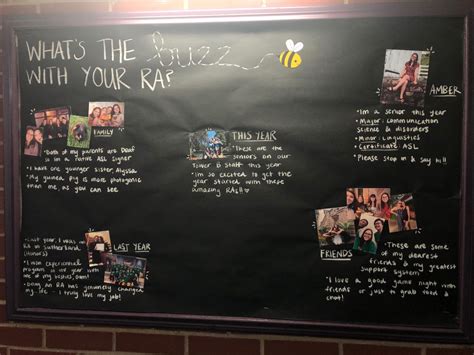 WHAT'S THE buzz
WITH YOUR RA?
FAMILY
• Both of my parents are Deaf
& I'm a native ASL signer
• I have one younger sister, Alyssa
• My guinea pig is more photogenic
than me, as you can see
THIS YEAR
• These are the
seniors on our
Tower B staff this year
• I'm so excited to get the
year started with these
amazing RAs!!
AMBER
• I'm a senior this year
• Major: communication
science & disorders
• Minor: Linguistics
• Certificate: ASL
Please stop in & say hi!
LAST YEAR
• Last year, I was an
RA in Sutherland
(Honors)
• I won experiential
program of the year with
one of my besties,
• Being an RA has genuinely changed
my life - I truly love my job!
FRIENDS
• These are some
of my dearest
friends & my greatest
support system
• I love a good game night with
friends or just to grab food &
chat!